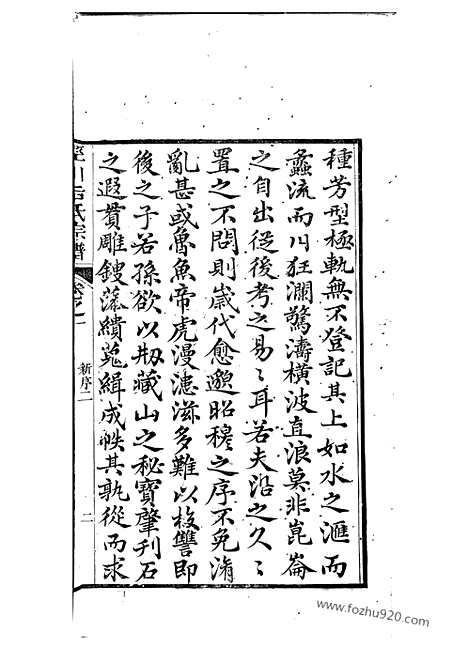 種芳型極軌無不登記其上如水之滙而
蠡流而川狂瀾驚濤橫波直浪莫非崑崙
之自出從後考之易〻耳若夫沿之久〻
置之不問則歲代愈邈昭穆之序不免淆
亂甚或魯魚帝虎漫漶滋多難以校讐即
後之子若孫欲以刱藏山之秘寶肇刊石
之遐貫雕鎪藻繢蒐緝成帙其孰從而求
川 氏宗譜
新序二
二
www.fozhu920.com